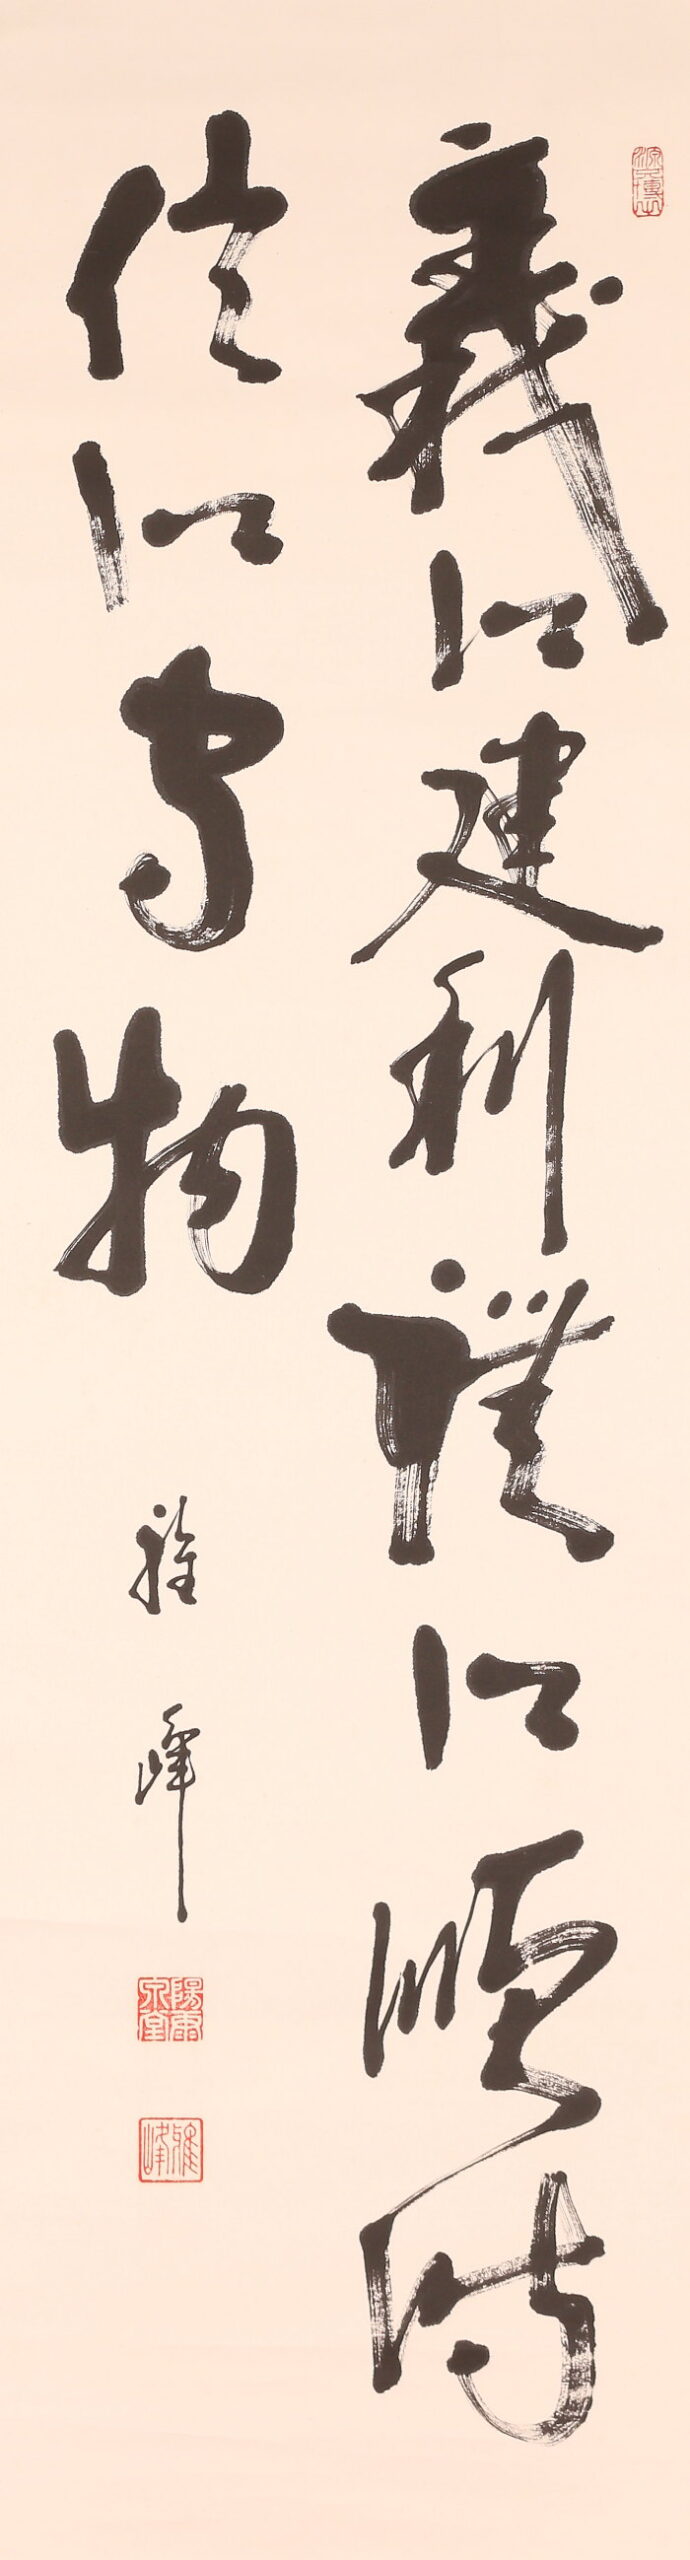 義以建利禮以順時
信以守物
雅峰
雅峰